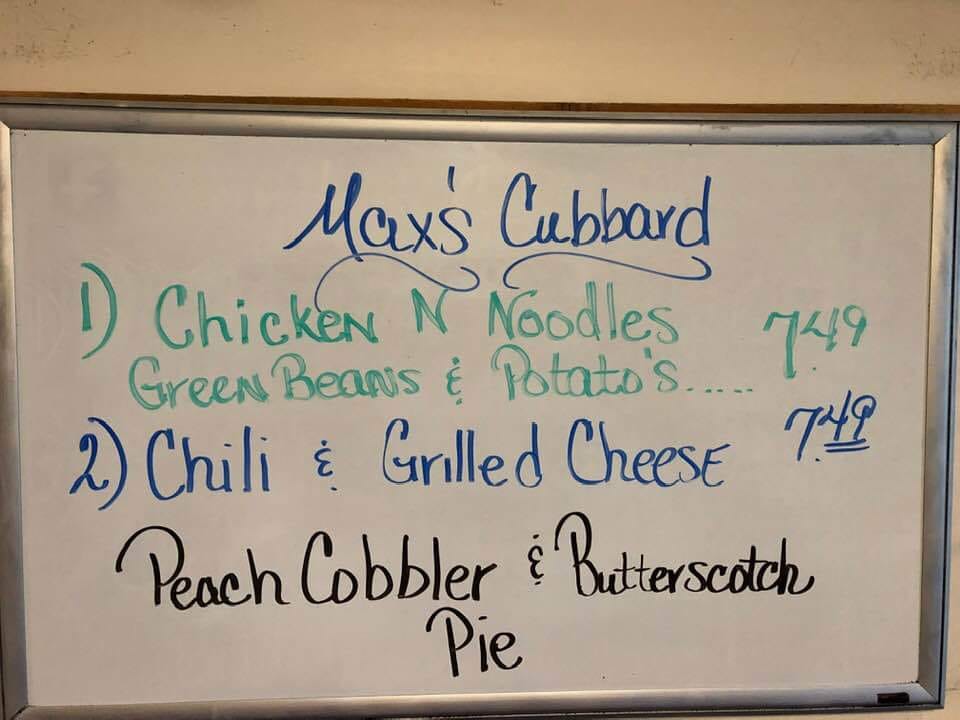 Max's Cubbard
1) Chicken N Noodles 7.49
Green Beans & Potato's.....
2) Chili & Grilled Cheese 7.49
Peach Cobbler & Butterscotch
Pie